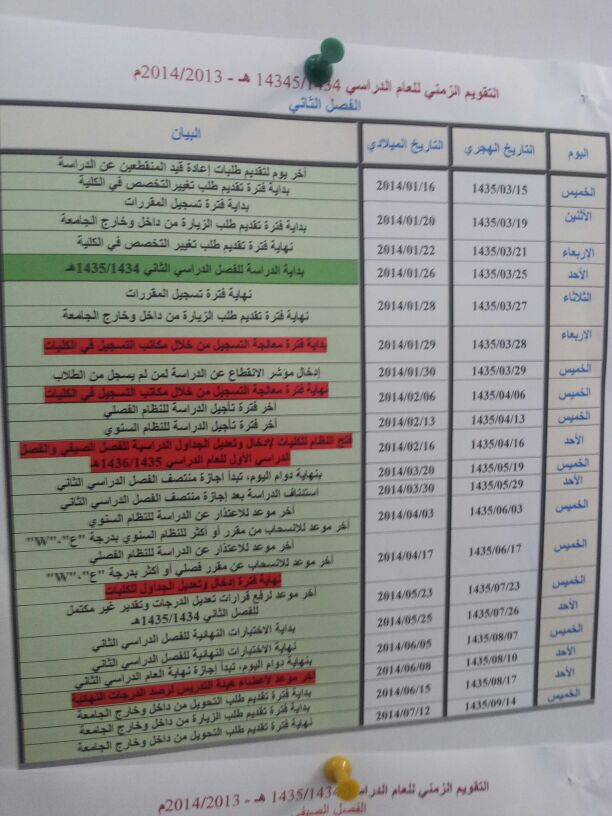 التقويم الزمني للعام الدراسي 14345/1434 هـ - 2014/2013م
الفصل الثاني
اليوم التاريخ الهجري التاريخ الميلادي البيان
آخر يوم لتقديم طلبات إعادة قيد المنقطعين عن الدراسة
الخميس 1435/03/15 2014/01/16 بداية فترة تقديم طلب تغيير التخصص في الكلية
بداية فترة تسجيل المقررات
الأثنين 1435/03/19 2014/01/20 بداية فترة تقديم طلب الزيارة من داخل وخارج الجامعة
الاربعاء 1435/03/21 2014/01/22 نهاية فترة تقديم طلب تغيير التخصص في الكلية
الأحد 1435/03/25 2014/01/26 بداية الدراسة للفصل الدراسي الثاني 1435/1434هـ
الثلاثاء 1435/03/27 2014/01/28 نهاية فترة تسجيل المقررات
نهاية فترة تقديم طلب الزيارة من داخل وخارج الجامعة
الاربعاء 1435/03/28 2014/01/29 بداية فترة معالجة التسجيل من خلال مكاتب التسجيل في الكليات
الخميس 1435/03/29 2014/01/30 إدخال مؤشر الانقطاع عن الدراسة لمن لم يسجل من الطلاب
الخميس 1435/04/06 2014/02/06 نهاية فترة معالجة التسجيل من خلال مكاتب التسجيل في الكليات
آخر فترة تأجيل الدراسة للنظام الفصلي
الخميس 1435/04/13 2014/02/13 آخر فترة تأجيل الدراسة للنظام السنوي
الأحد 1435/04/16 2014/02/16 فتح النظام للكليات لإدخال وتعديل الجداول الدراسية للفصل الصيفي والفصل
الدراسي الأول للعام الدراسي 1436/1435هـ
الخميس 1435/05/19 2014/03/20 بنهاية دوام اليوم، تبدأ اجازة منتصف الفصل الدراسي الثاني
الأحد 1435/05/29 2014/03/30 استئناف الدراسة بعد إجازة منتصف الفصل الدراسي الثاني
الخميس 1435/06/03 2014/04/03 آخر موعد للاعتذار عن الدراسة للنظام السنوي
آخر موعد للانسحاب من مقرر أو أكثر للنظام السنوي بدرجة "ع"-"W"
الخميس 1435/06/17 2014/04/17 آخر موعد للاعتذار عن الدراسة للنظام الفصلي
آخر موعد للانسحاب عن مقرر فصلي أو أكثر بدرجة "ع"-"W"
نهاية فترة إدخال وتعديل الجداول للكليات
الخميس 1435/07/23 2014/05/23 آخر موعد لرفع قرارات تعديل الدرجات وتقدير غير مكتمل
للفصل الثاني 1435/1434هـ
الأحد 1435/07/26 2014/05/25 بداية الاختبارات النهائية للفصل الدراسي الثاني
الخميس 1435/08/07 2014/06/05 نهاية الاختبارات النهائية للفصل الدراسي الثاني
بنهاية دوام اليوم، تبدأ إجازة نهاية العام الدراسي الثاني
الأحد 1435/08/10 2014/06/08 آخر موعد لأعضاء هيئة التدريس لرصد الدرجات النهائية
الأحد 1435/08/17 2014/06/15 بداية فترة تقديم طلب التحويل من داخل وخارج الجامعة
بداية فترة تقديم طلب الزيارة من داخل وخارج الجامعة
الخميس 1435/09/14 2014/07/12 نهاية فترة تقديم طلب التحويل من داخل وخارج الجامعة
التقويم الزمني للعام الدراسي 1435/1434 هـ - 2014/2013م
الفصل الصيفي